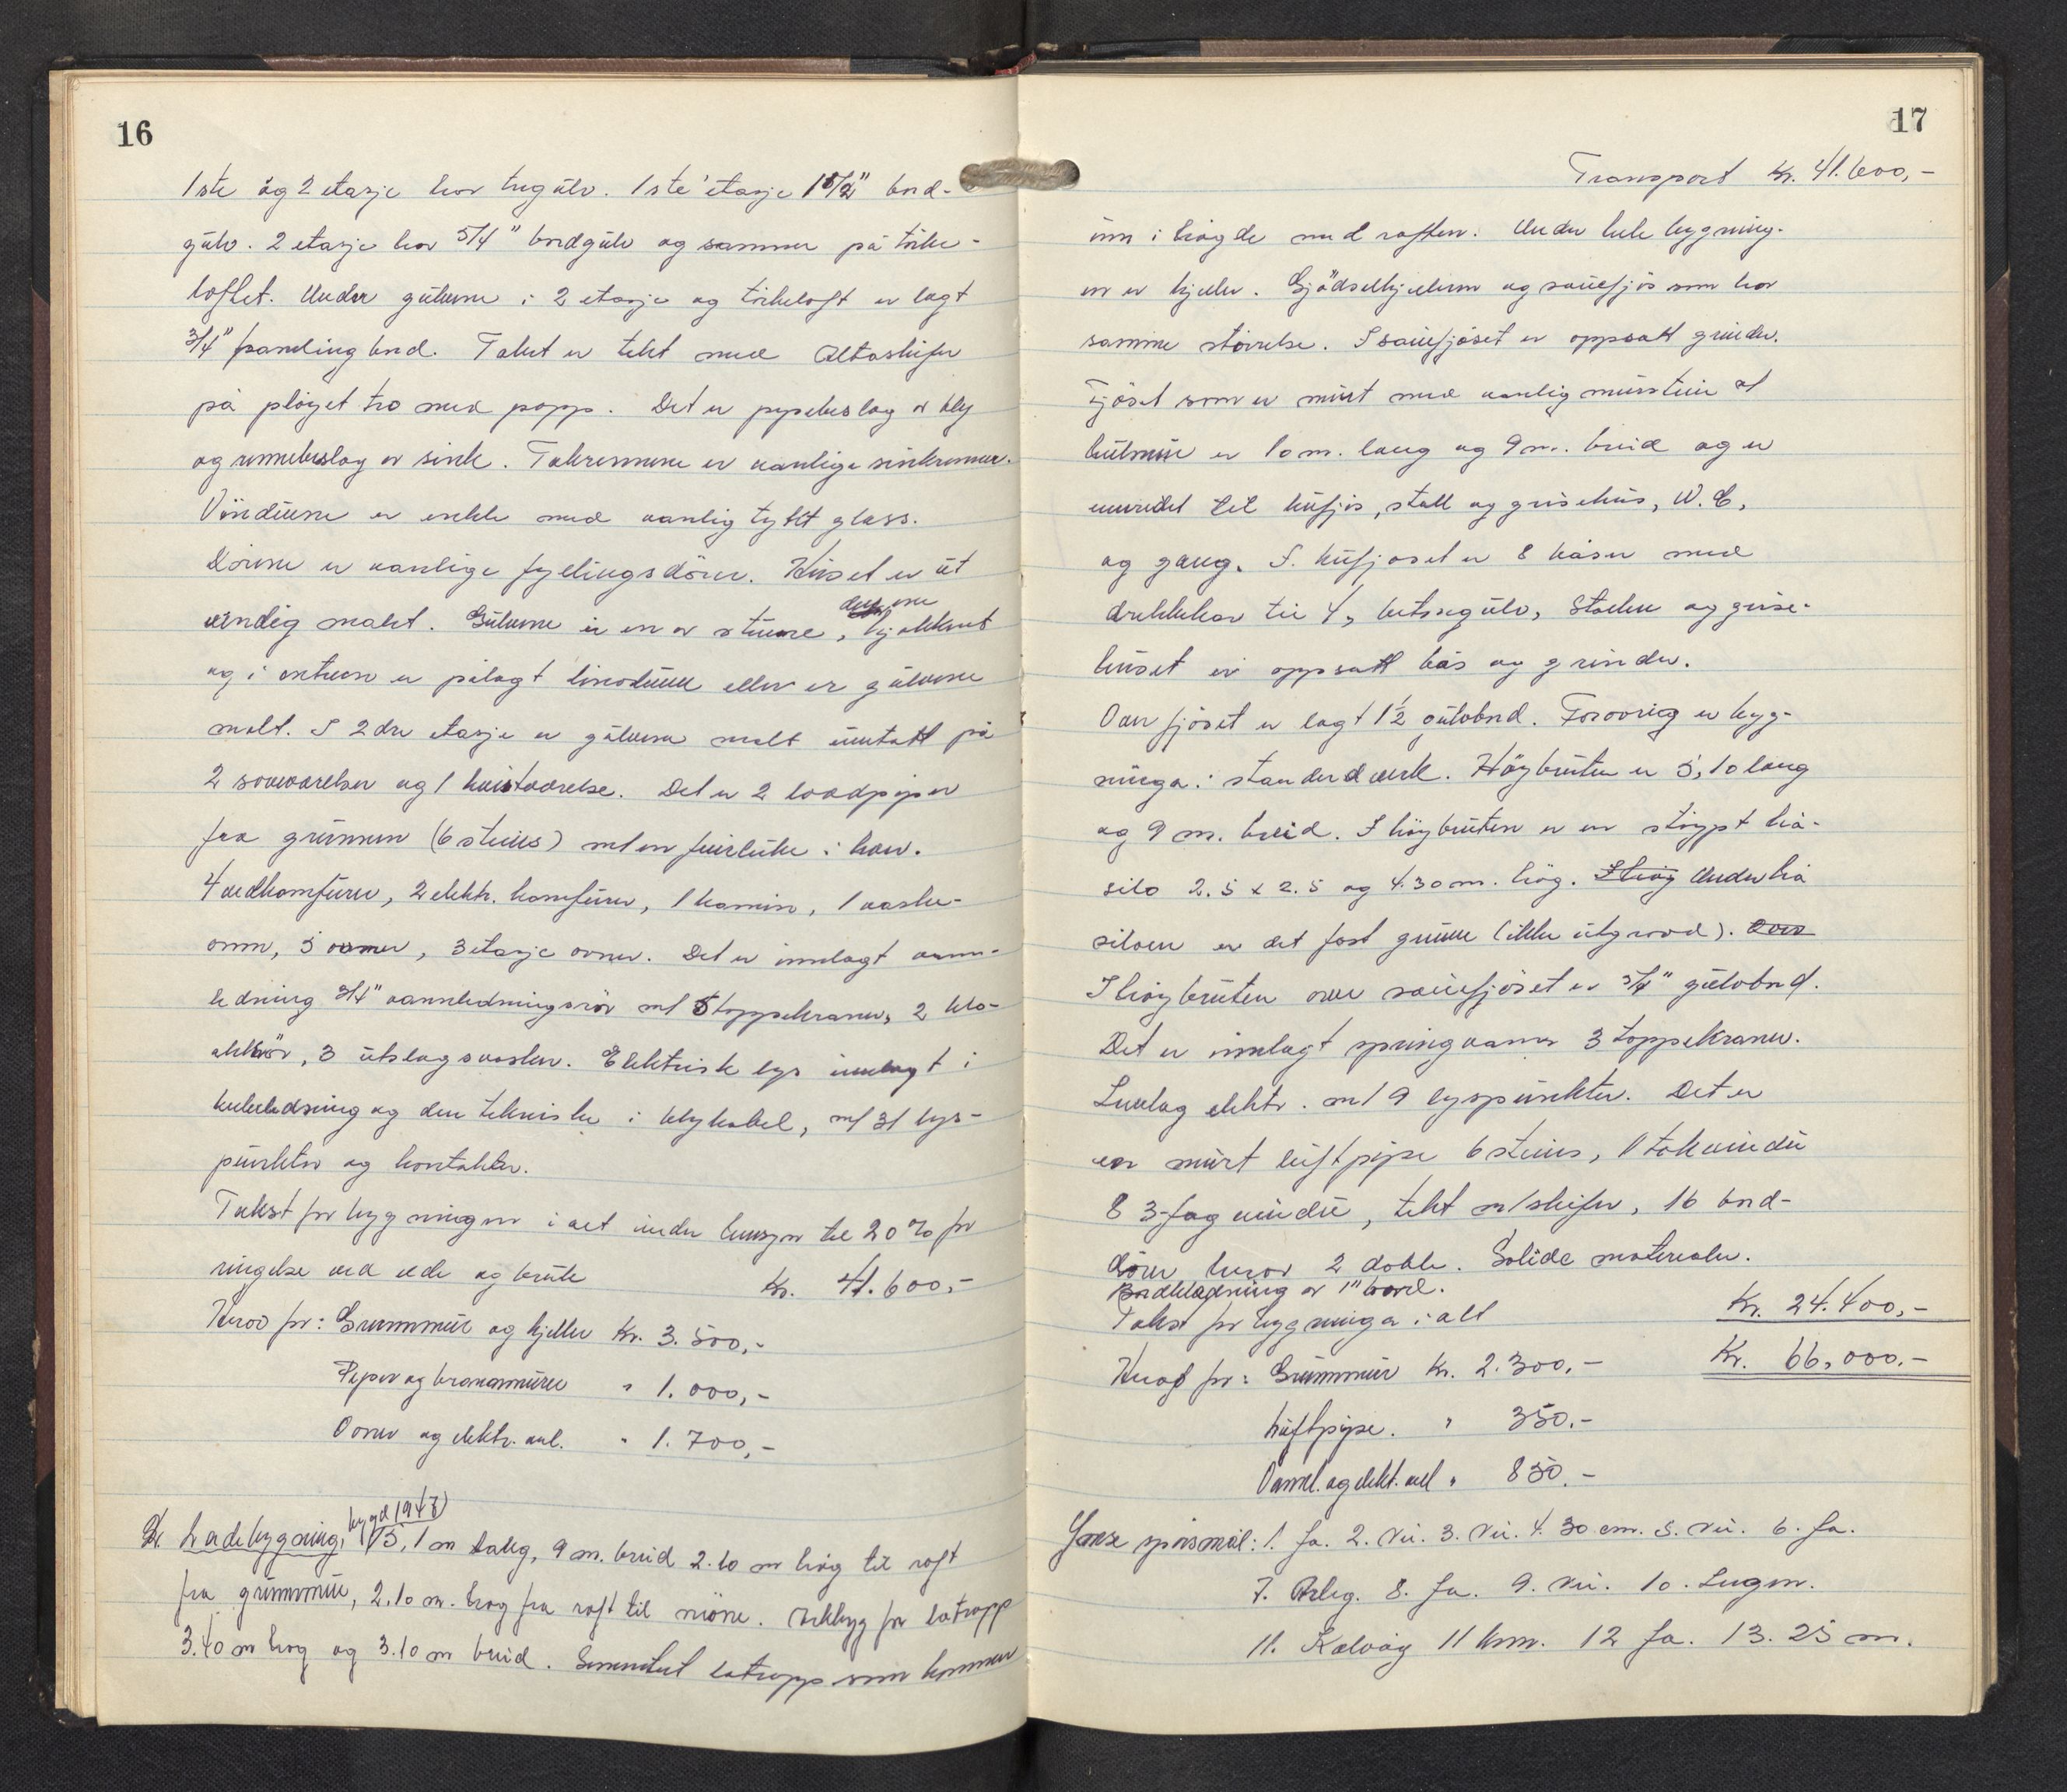 16
1ste og 2 etasje har tregulv. 1ste etasje 1 1/2" bord-
gulv. 2 etasje har 5/4" bordgulv og samme på törke-
loftet. Under gulvene i 2 etasje og törkeloft er lagt
3/4" panelingbord. Taket er tekt med Altaskifer
på pløyet tro med papp. Det er pipebeslag av bly
og rennebeslag av sink. Takrennene er vanlige sinkrenner.
Vinduene er enkle med vanlig tykt glass.
Dörene er vanlige fyllingsdörer. Huset er ut
vendig malt. Gulvene i en av stuene, kjökkenet
og i entreen er pålagt linoleum ellers er gulvene
malt. I 2dre etasje er gulvene malt unntatt på
2 soveværelser og 1 kvistværelse. Det er 2 loddpiper
fra grunnen (6 steins) m/en feieluke i hver.
4 vedkomfurer, 2 elektr. komfurer, 1 kamin, 1 vaske-
ovn, 5 ovner, 3 etasje ovner. Det er innlagt vann-
ledning 3/4" vannledningsrör m/ 5 toppekraner, 2 klo-
akkrör, 3 utslagsvasker. Elektrisk lys innlagt i
kuleledning og den tekniske i blykabel, m/ 31 lys-
punkter og kontakter.
Takst for bygningen i alt under hensyn til 20% for
ringelse ved elde og bruk Kr. 41.600,-
Herav for: Grunnmur og kjeller Kr. 3.500,-
Piper og brannmurer " 1.000,-
Ovner og elektr. anl. " 1.700,-
bygd 1947
2. Ladebygning, 15,1 m lang, 9 m. breid 2.10 m høg til raft
fra grunnmur, 2.10 m. høg fra raft til möne. Arkbygg for låtropp
3.40 m høg og 3.10 m breid. låtropp som kommer
17
Transport Kr. 41.600,-
inn i høgde med raften. Under hele bygning-
en er kjeller. Gjödselkjelleren og sauefjös som har
samme störrelse. I sauefjöset er oppsatt grinder.
Fjöset som er murt med vanlig murstein
hulmur er 10 m. lang og 9 m. breid og er
innredet til kufjös, stall og grisehus, W.C,
og gang. I kufjöset er 8 båser med
drikkekar til 4, betongulv, Stallen og grise-
huset er oppsatt bås og grinder.
Over fjöset er lagt 1 1/2 gulvbord. Forövrig er byg-
ninga i standerdverk. Höybruten er 5,10 lang
og 9 m. breid. I höybruten er en stöypt hå-
silo 2.5 x 2.5 og 4.30 m. høg. I høy Under hå
siloen er det fast grunn (ikke utgravd). Over
I høybruten over sauefjöset er 5/4" gulvbord.
Det er innlagt springvann 3 toppekraner.
Innlag elektr. m/ 9 lyspunkter. Det er
en murt luftpipe 6 steins, 1 takvindu
8 3-fag vindu, tekt m/skifer, 16 bord-
dörer herav 2 doble. Solide materialer.
Bordkledning av 1" bord.
Takst for bygninga i alt Kr. 24.400,-
Kr. 66,000.-
Herav for: Grunnmur Kr. 2.300,-
Luftpipe. " 350.-
Vannl. og elekt. anl " 850.-
Ymse spörsmål: 1. Ja. 2. Nei. 3. Nei. 4. 30 cm. 5. Nei. 6. Ja.
7. Årleg. 8. Ja. 9. Nei. 10. Ingen.
11. Kalvåg 11 km. 12 Ja. 13. 25 m.